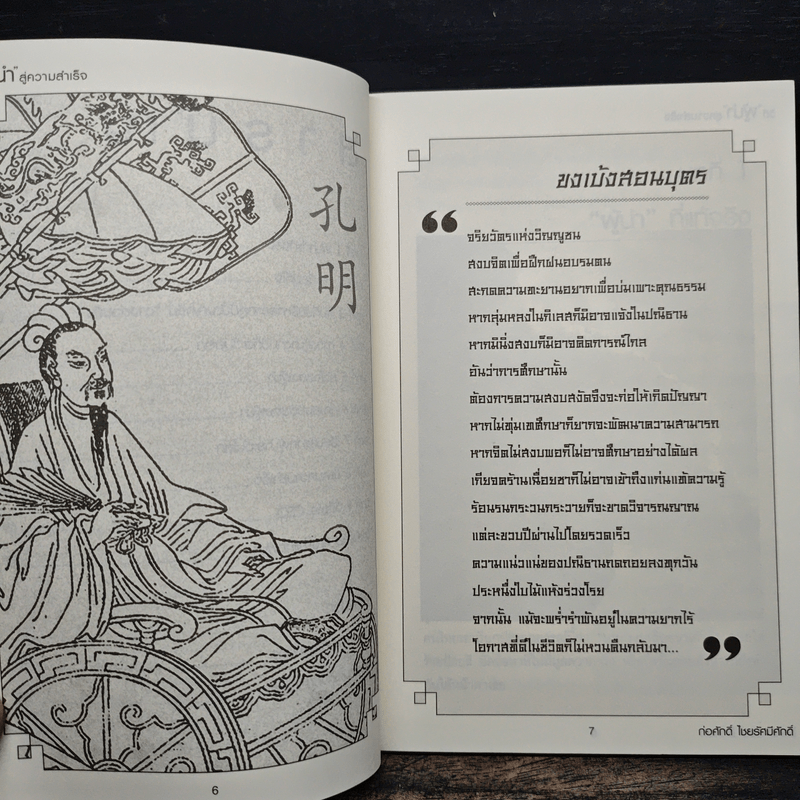 นำ" สู่ความสำเร็จ
孔明
6
ขงเบ้งสอนบุตร
“
จริยวัตรแห่งวิญญูชน
สงบจิตเพื่อฝึกฝนอบรมตน
สะกดความทะยานอยากเพื่อบ่มเพาะคุณธรรม
หากลุ่มหลงในกิเลสก็มิอาจแจ้งในปณิธาน
หากมินิ่งสงบก็มิอาจคิดการณ์ไกล
อันว่าการศึกษานั้น
ต้องการความสงบสงัดจึงจะก่อให้เกิดปัญญา
หากไม่ทุ่มเทศึกษาก็ยากจะพัฒนาความสามารถ
หากจิตไม่สงบพอก็ไม่อาจศึกษาอย่างได้ผล
เกียจคร้านเฉื่อยชาก็ไม่อาจเข้าถึงแก่นแท้ความรู้
ร้อนรนกระวนกระวายก็จะขาดวิจารณญาณ
แต่ละขวบปีผ่านไปโดยรวดเร็ว
ความแน่วแน่ของปณิธานถดถอยลงทุกวัน
ประหนึ่งใบไม้แห้งร่วงโรย
จากนั้น แม้จะพร่ำรำพันอยู่ในความยากไร้
โอกาสที่ดีในชีวิตก็ไม่หวนคืนกลับมา...
”
7
ก่อศักดิ์ ไชยรัศมีศักดิ์